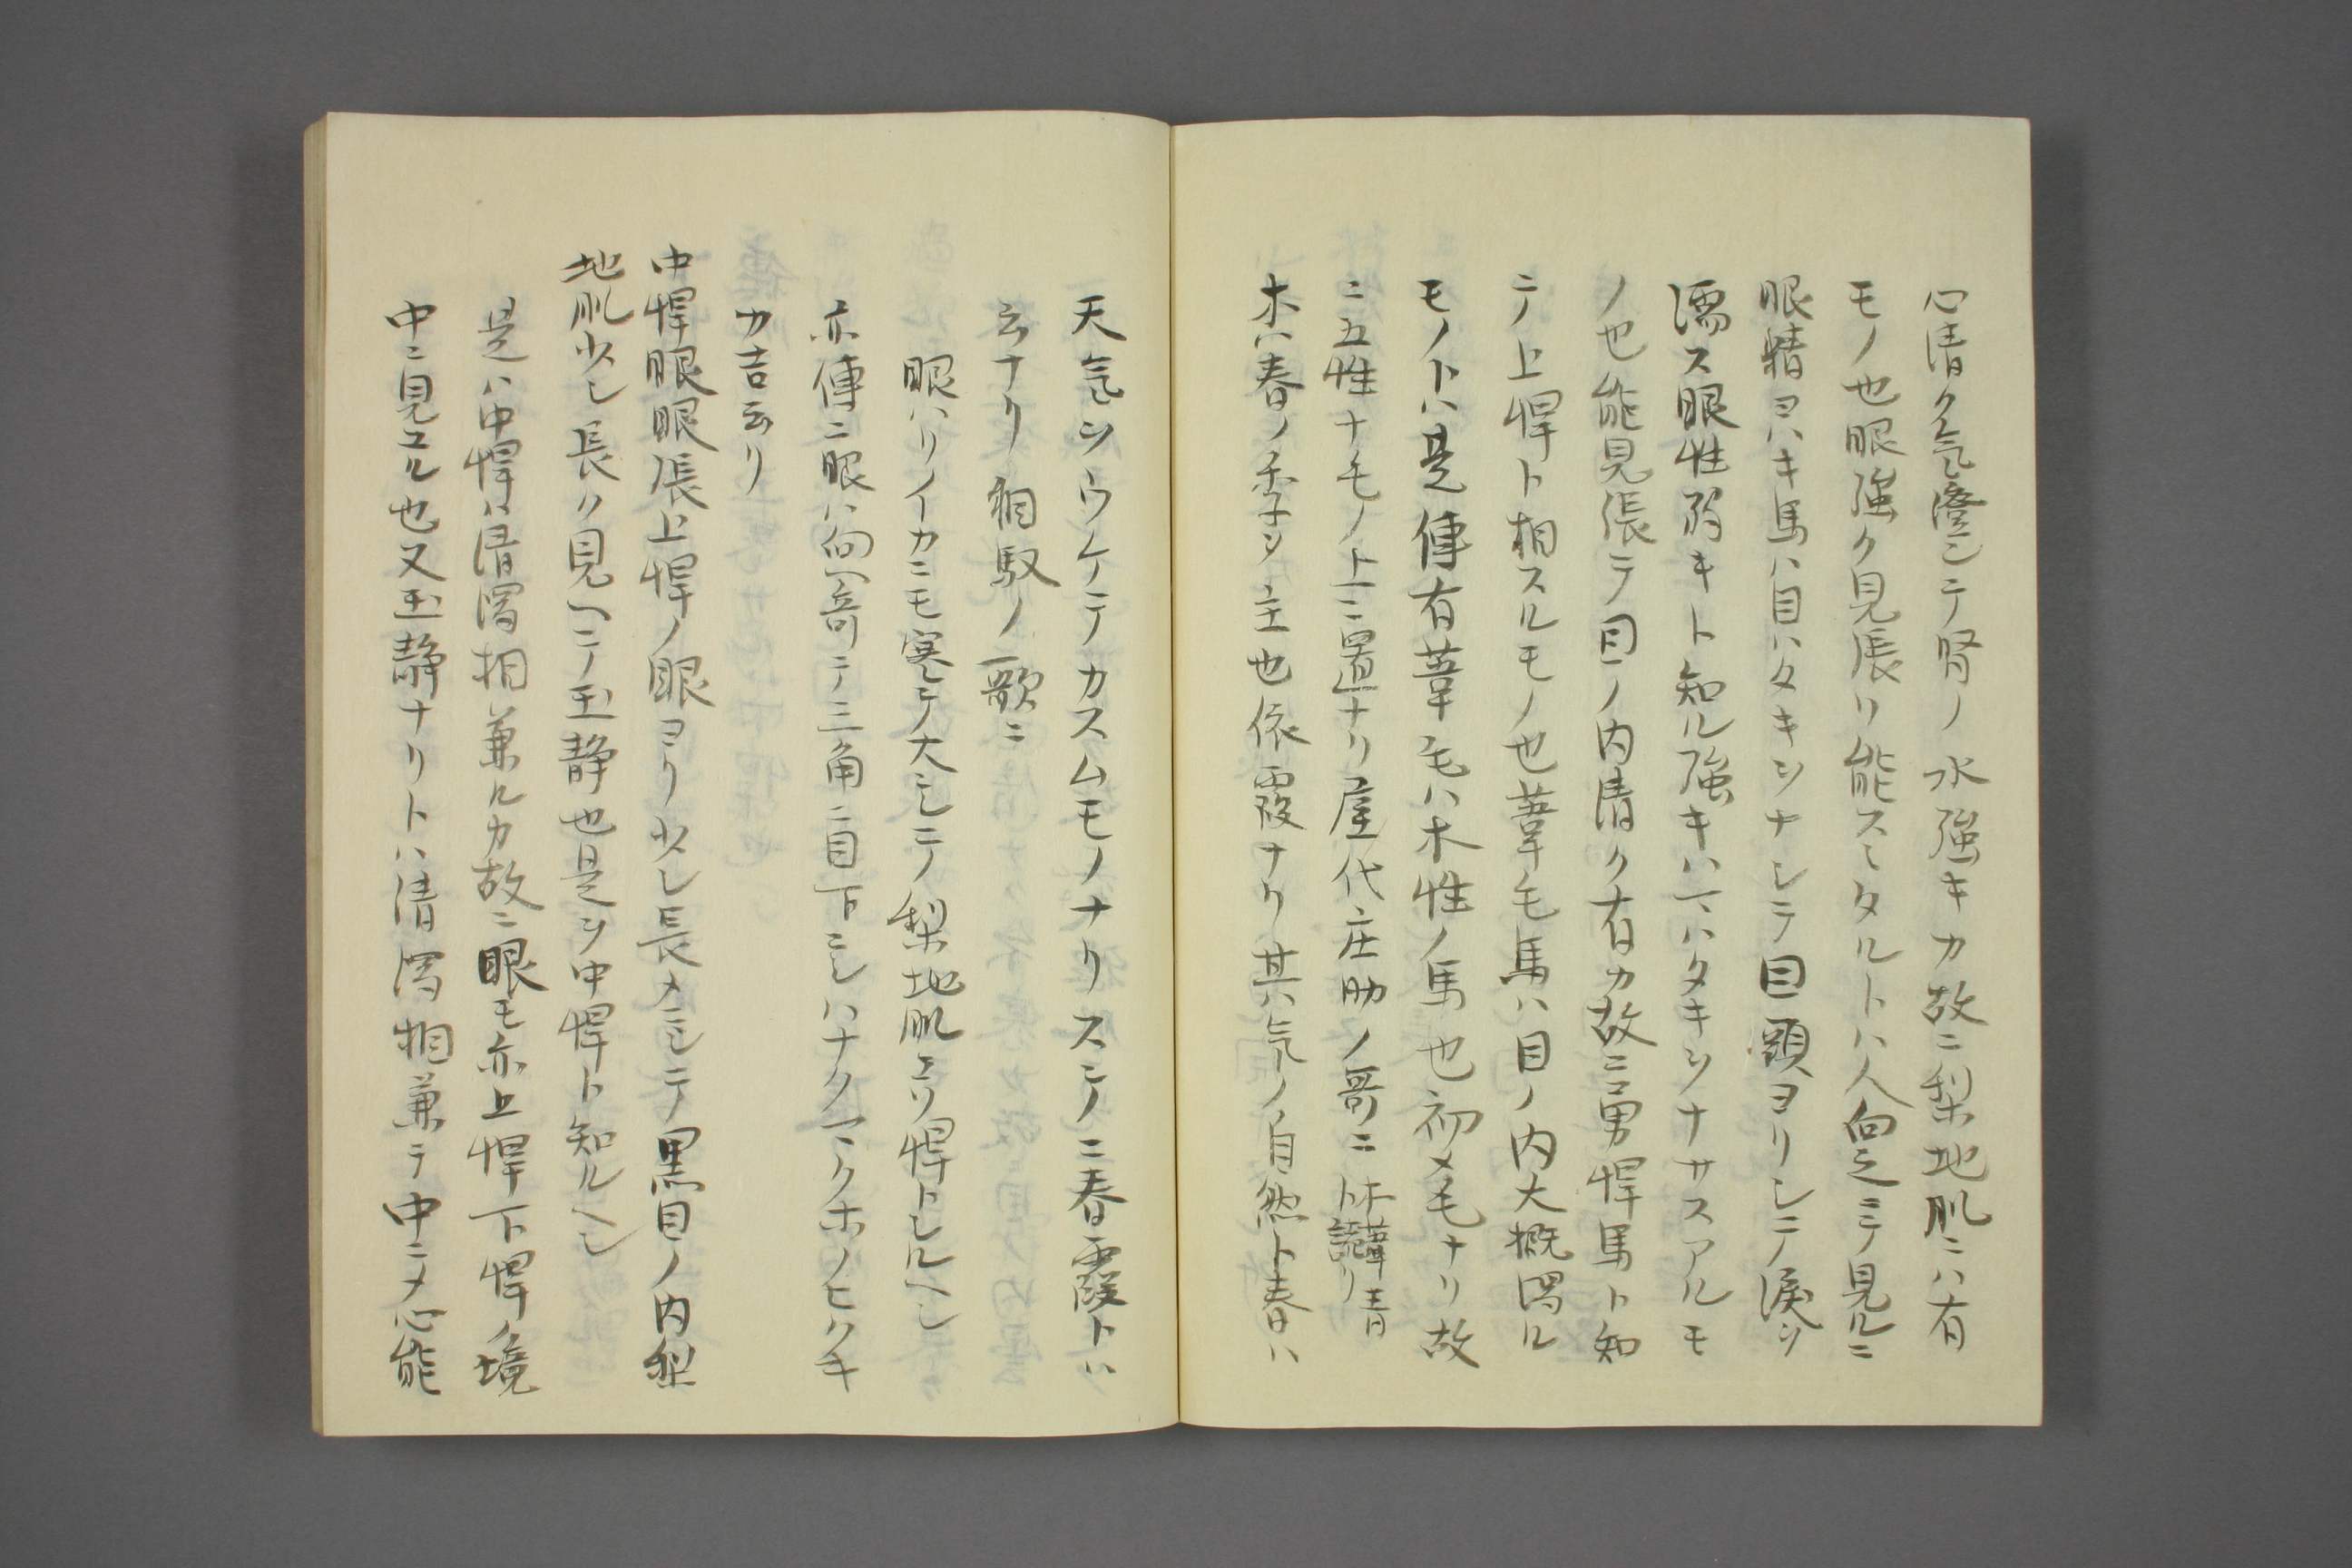 心清ク気澄シテ腎ノ水強キカ故ニ梨地肌ニハ有
モノ也眼強ク見張リ能スミタルトハ人向之ミテ見ルニ
眼精ヨハキ馬ハ目ハタキシナシテ目頭ヨリシテ涙ヲ
濡ス眼性弱キト知ル強キハマハタキヲナサスアルモ
ノ也能見張テ目ノ内清ク有カ故ニ勇悍馬ト知
テ上悍ト相スルモノ也葦毛馬ハ目ノ内大概濁ル
モノトハ是傳有葦毛ハ木性ノ馬也初メ毛ナリ故
ニ五性ナモノ上ニ置ナリ屋代庄助ノ哥ニ
木ハ春ノ季ヲ主也依霞ナリ其ハ気ノ自然ト春ハ
天気ヲウケテカスムモノナリステノニ春霞トハ
云ナリ相馭ノ歌ニ
眼ハリイカニモ寒テ大シテ梨地肌ヨリ悍トシルヘシ
亦傳ニ眼ハ向寄テ三角ニ目下シハナクマクホノヒクキ
カ吉云リ
中悍眼眼張上悍ノ眼ヨリ少シ長メニシテ黒目ノ内梨
地肌少シ長ク見ヘテ玉静也是ヲ中悍ト知ルヘシ
是ハ中悍ハ清濁相兼ルカ故ニ眼モ亦上悍下悍ノ境
中ニ見ユル也又玉静ナリトハ清濁相兼テ中ニメ心能